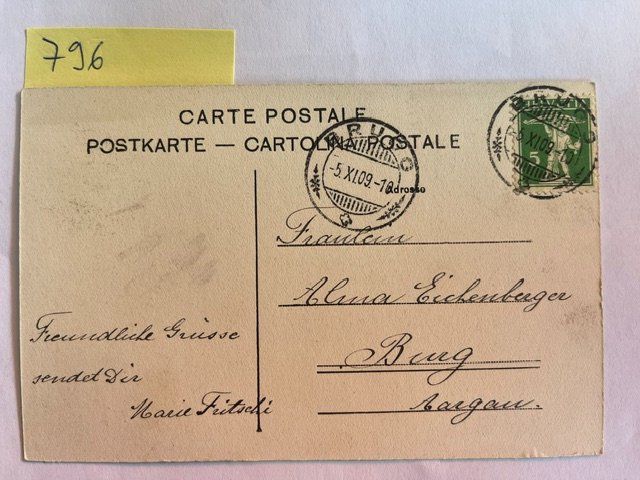 796
CARTE POSTALE
POSTKARTE — CARTOLINA POSTALE
BRUGG
-5.XI.09.-10
BRUGG
-5.XI.09.-10
5
Adresse
Fräulein
Alma Eichenberger
Burg
Aargau.
Freundliche Grüsse
sendet Dir
Marie Fritschi